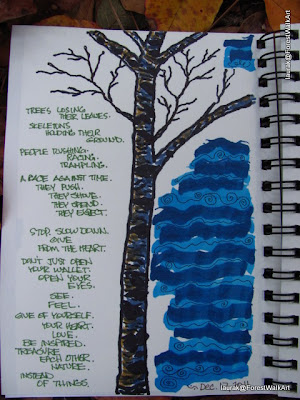 TREES LOSING
THEIR LEAVES.
SKELETONS
HOLDING THEIR
GROUND.
PEOPLE RUSHING.
RACING.
TRAMPLING.
A RACE AGAINST TIME.
THEY PUSH.
THEY SHOVE.
THEY SPEND.
THEY EXPECT.
STOP. SLOW DOWN.
GIVE
FROM THE HEART.
DON'T JUST OPEN
YOUR WALLET.
OPEN YOUR
EYES.
SEE.
FEEL.
GIVE OF YOURSELF.
YOUR HEART.
LOVE.
BE INSPIRED.
TREASURE
EACH OTHER.
NATURE.
INSTEAD
OF THINGS.
Dec
laurak@ForestWalkArt
laurak@ForestWalkArt